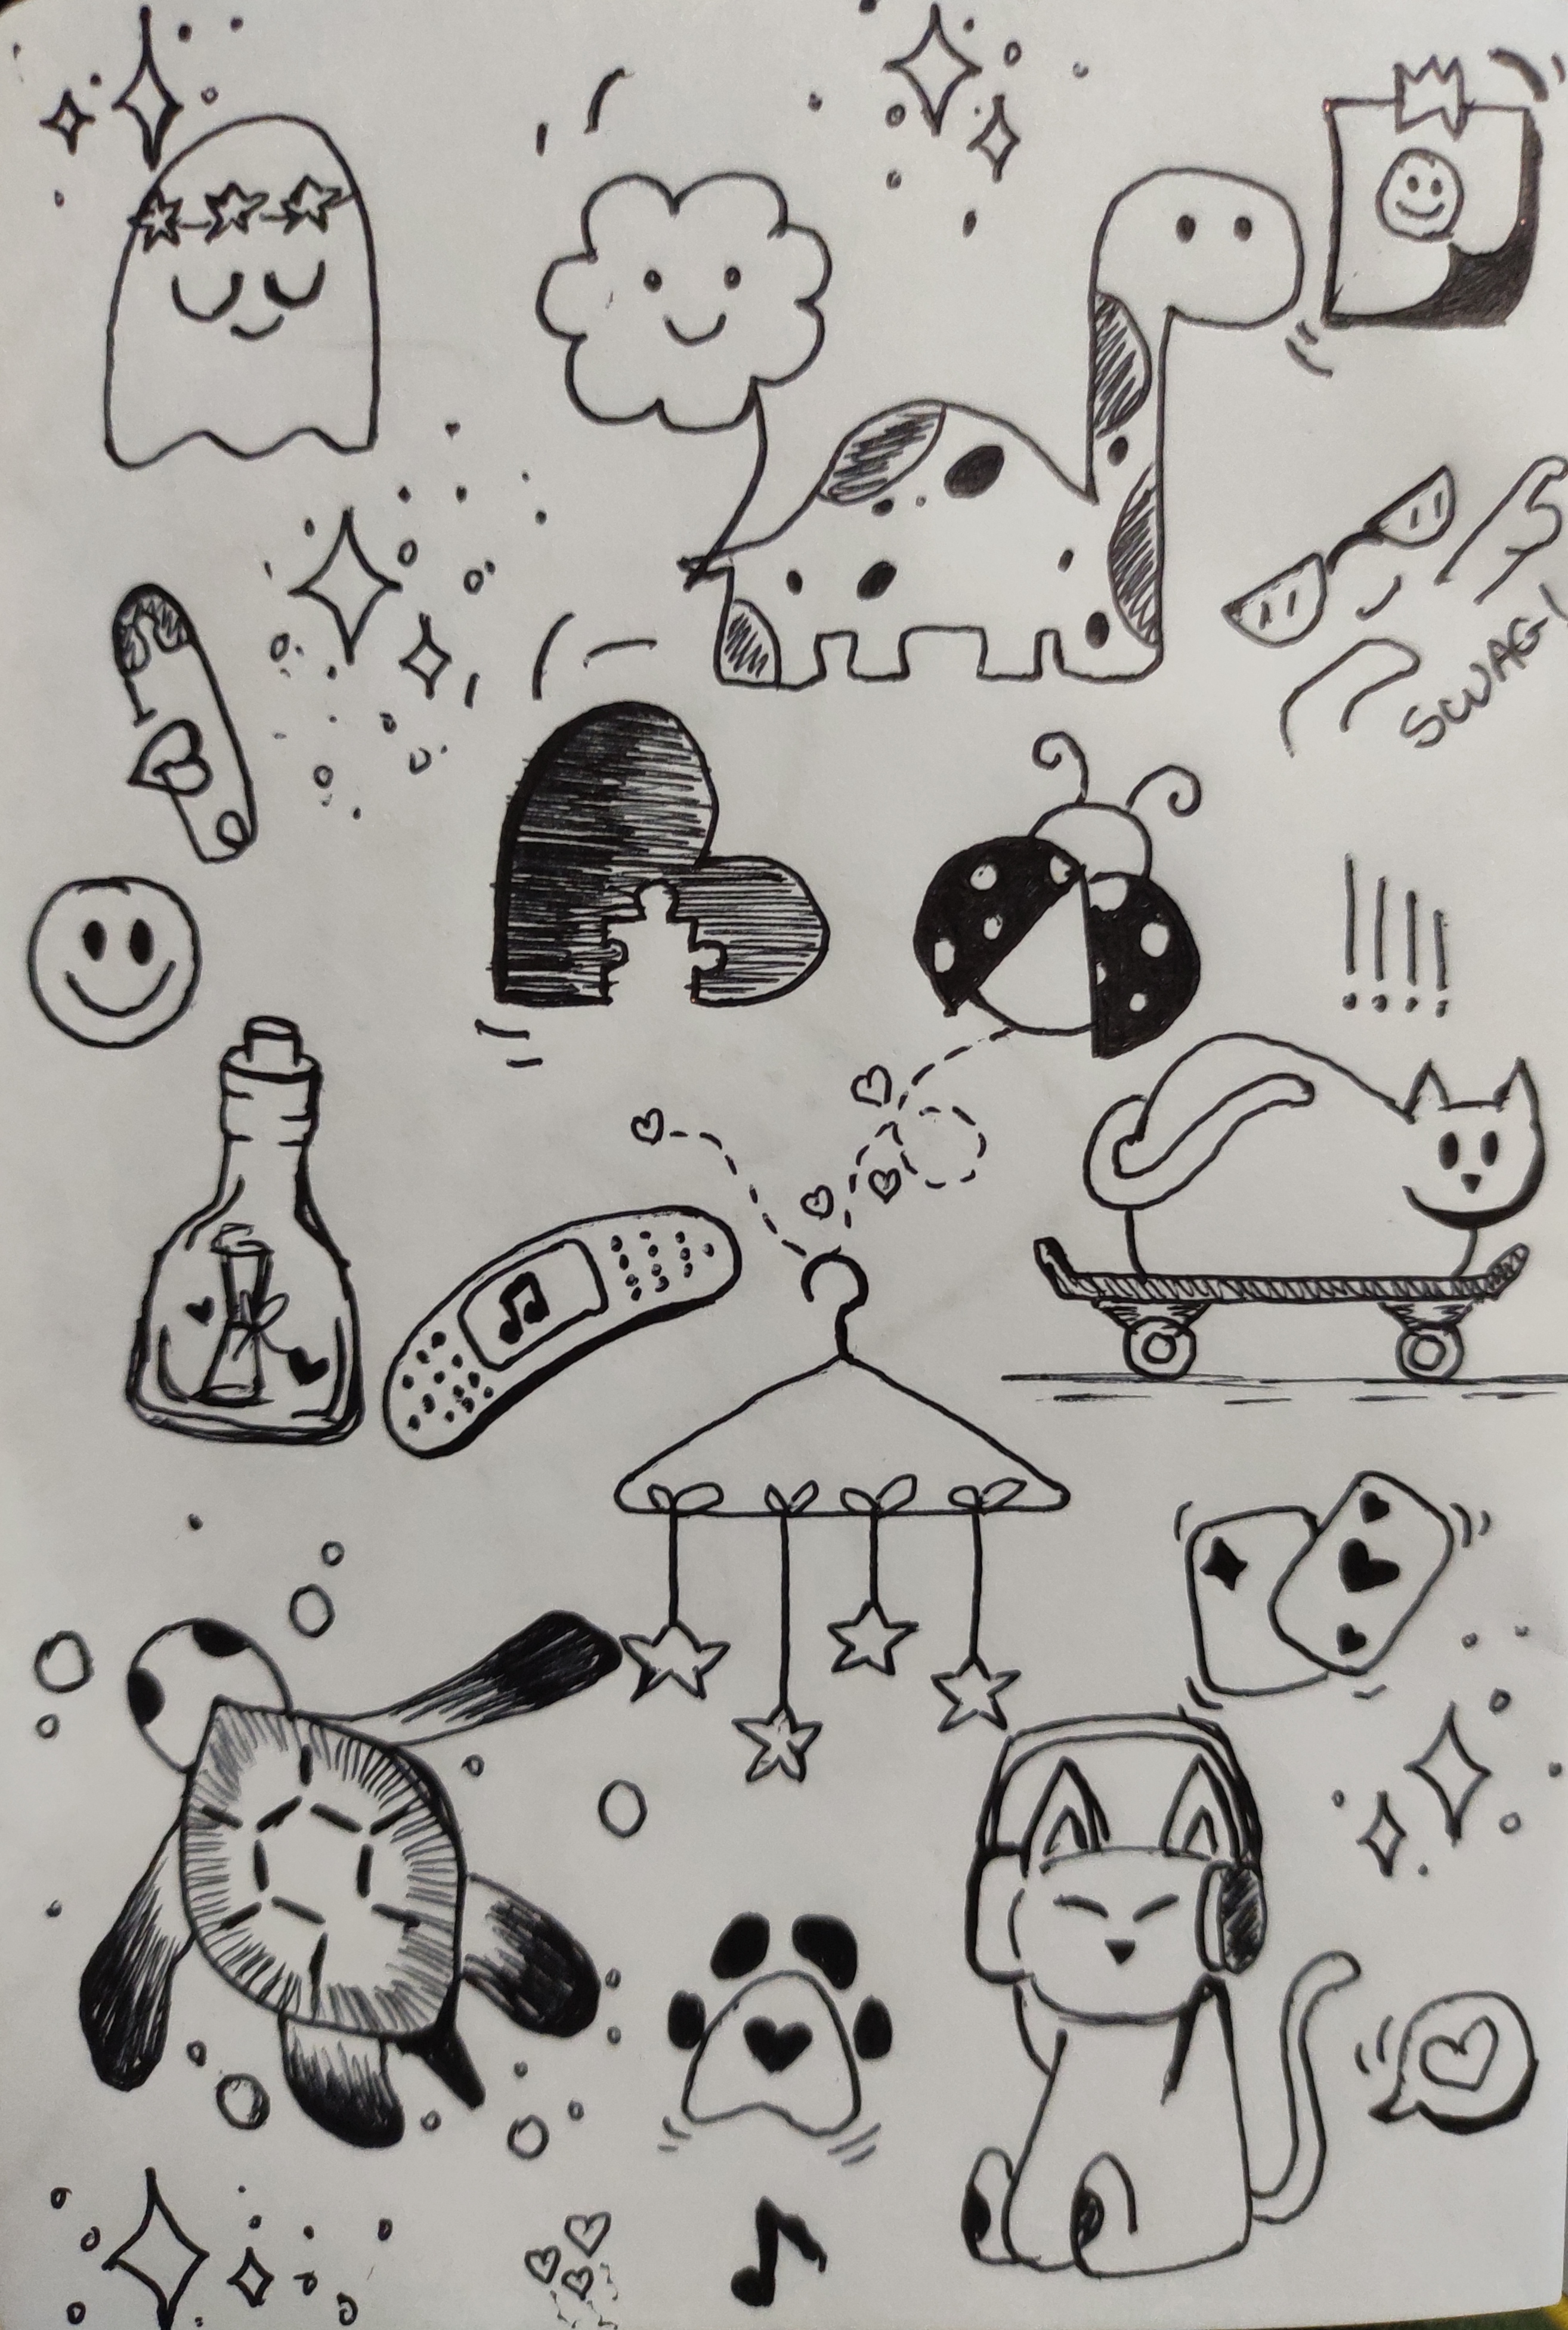 SWAG!
!!!!